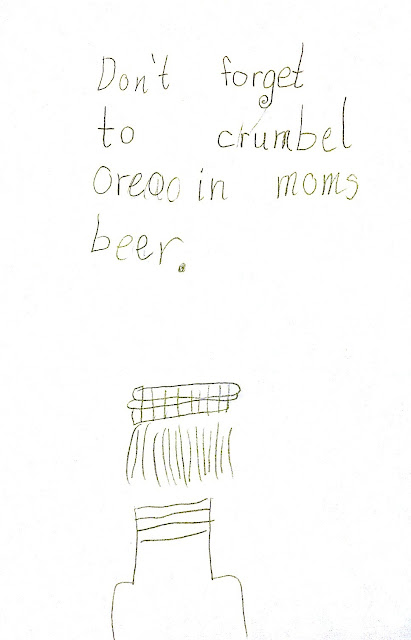 Don't forget
to crumbel
oreoo in moms
beer.